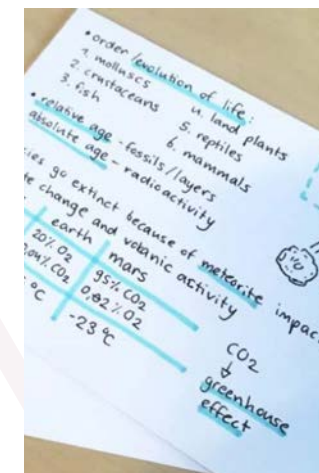 • order/evolution of life:
1. molluscs
2. crustaceans
3. fish
4. land plants
5. reptiles
6. mammals
• relative age - fossils/layers
absolute age - radioactivity
go extinct because of meteorite
change and volcanic activity
earth mars
20% O2 95% CO2
0,04% CO2 0,02% O2
°C -23 °C
CO2
↓
greenhouse
effect